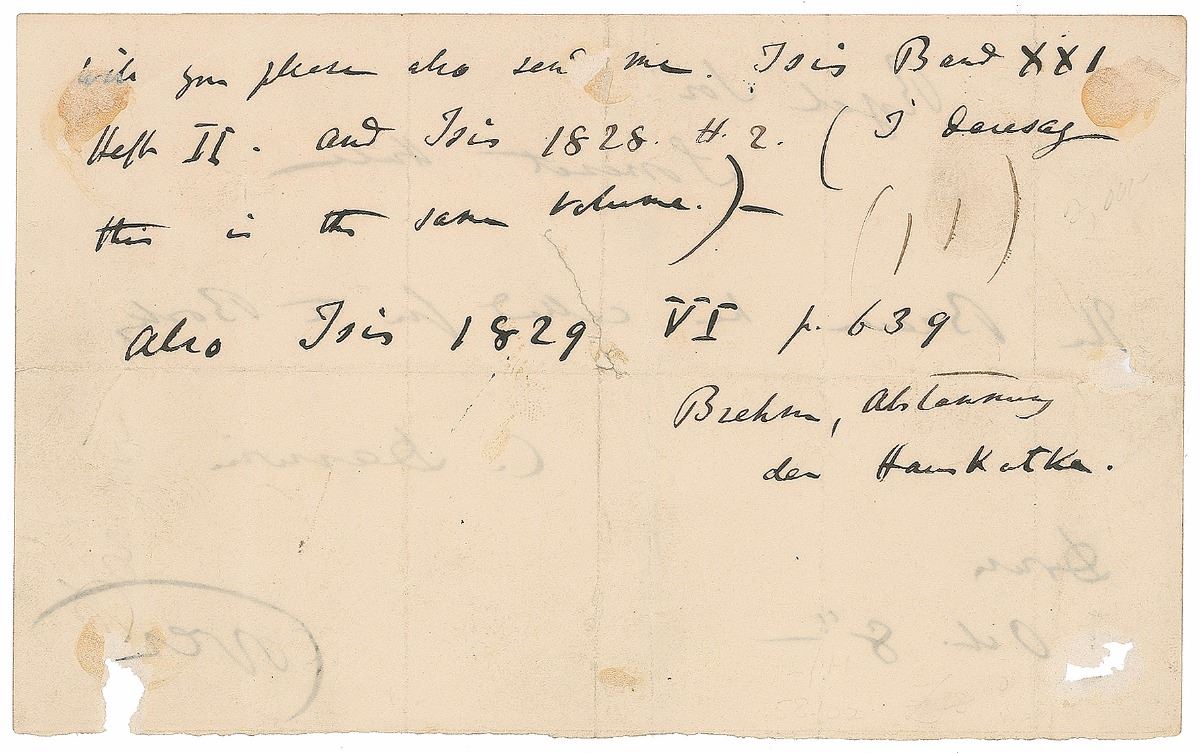 will you please also send me. Isis Band XXI
Heft II. and Isis 1828. H. 2. ( I daresay
this is the same volume.)—
Also Isis 1829 VI p. 639
Brehm, Abstammung
der Hauskatze.